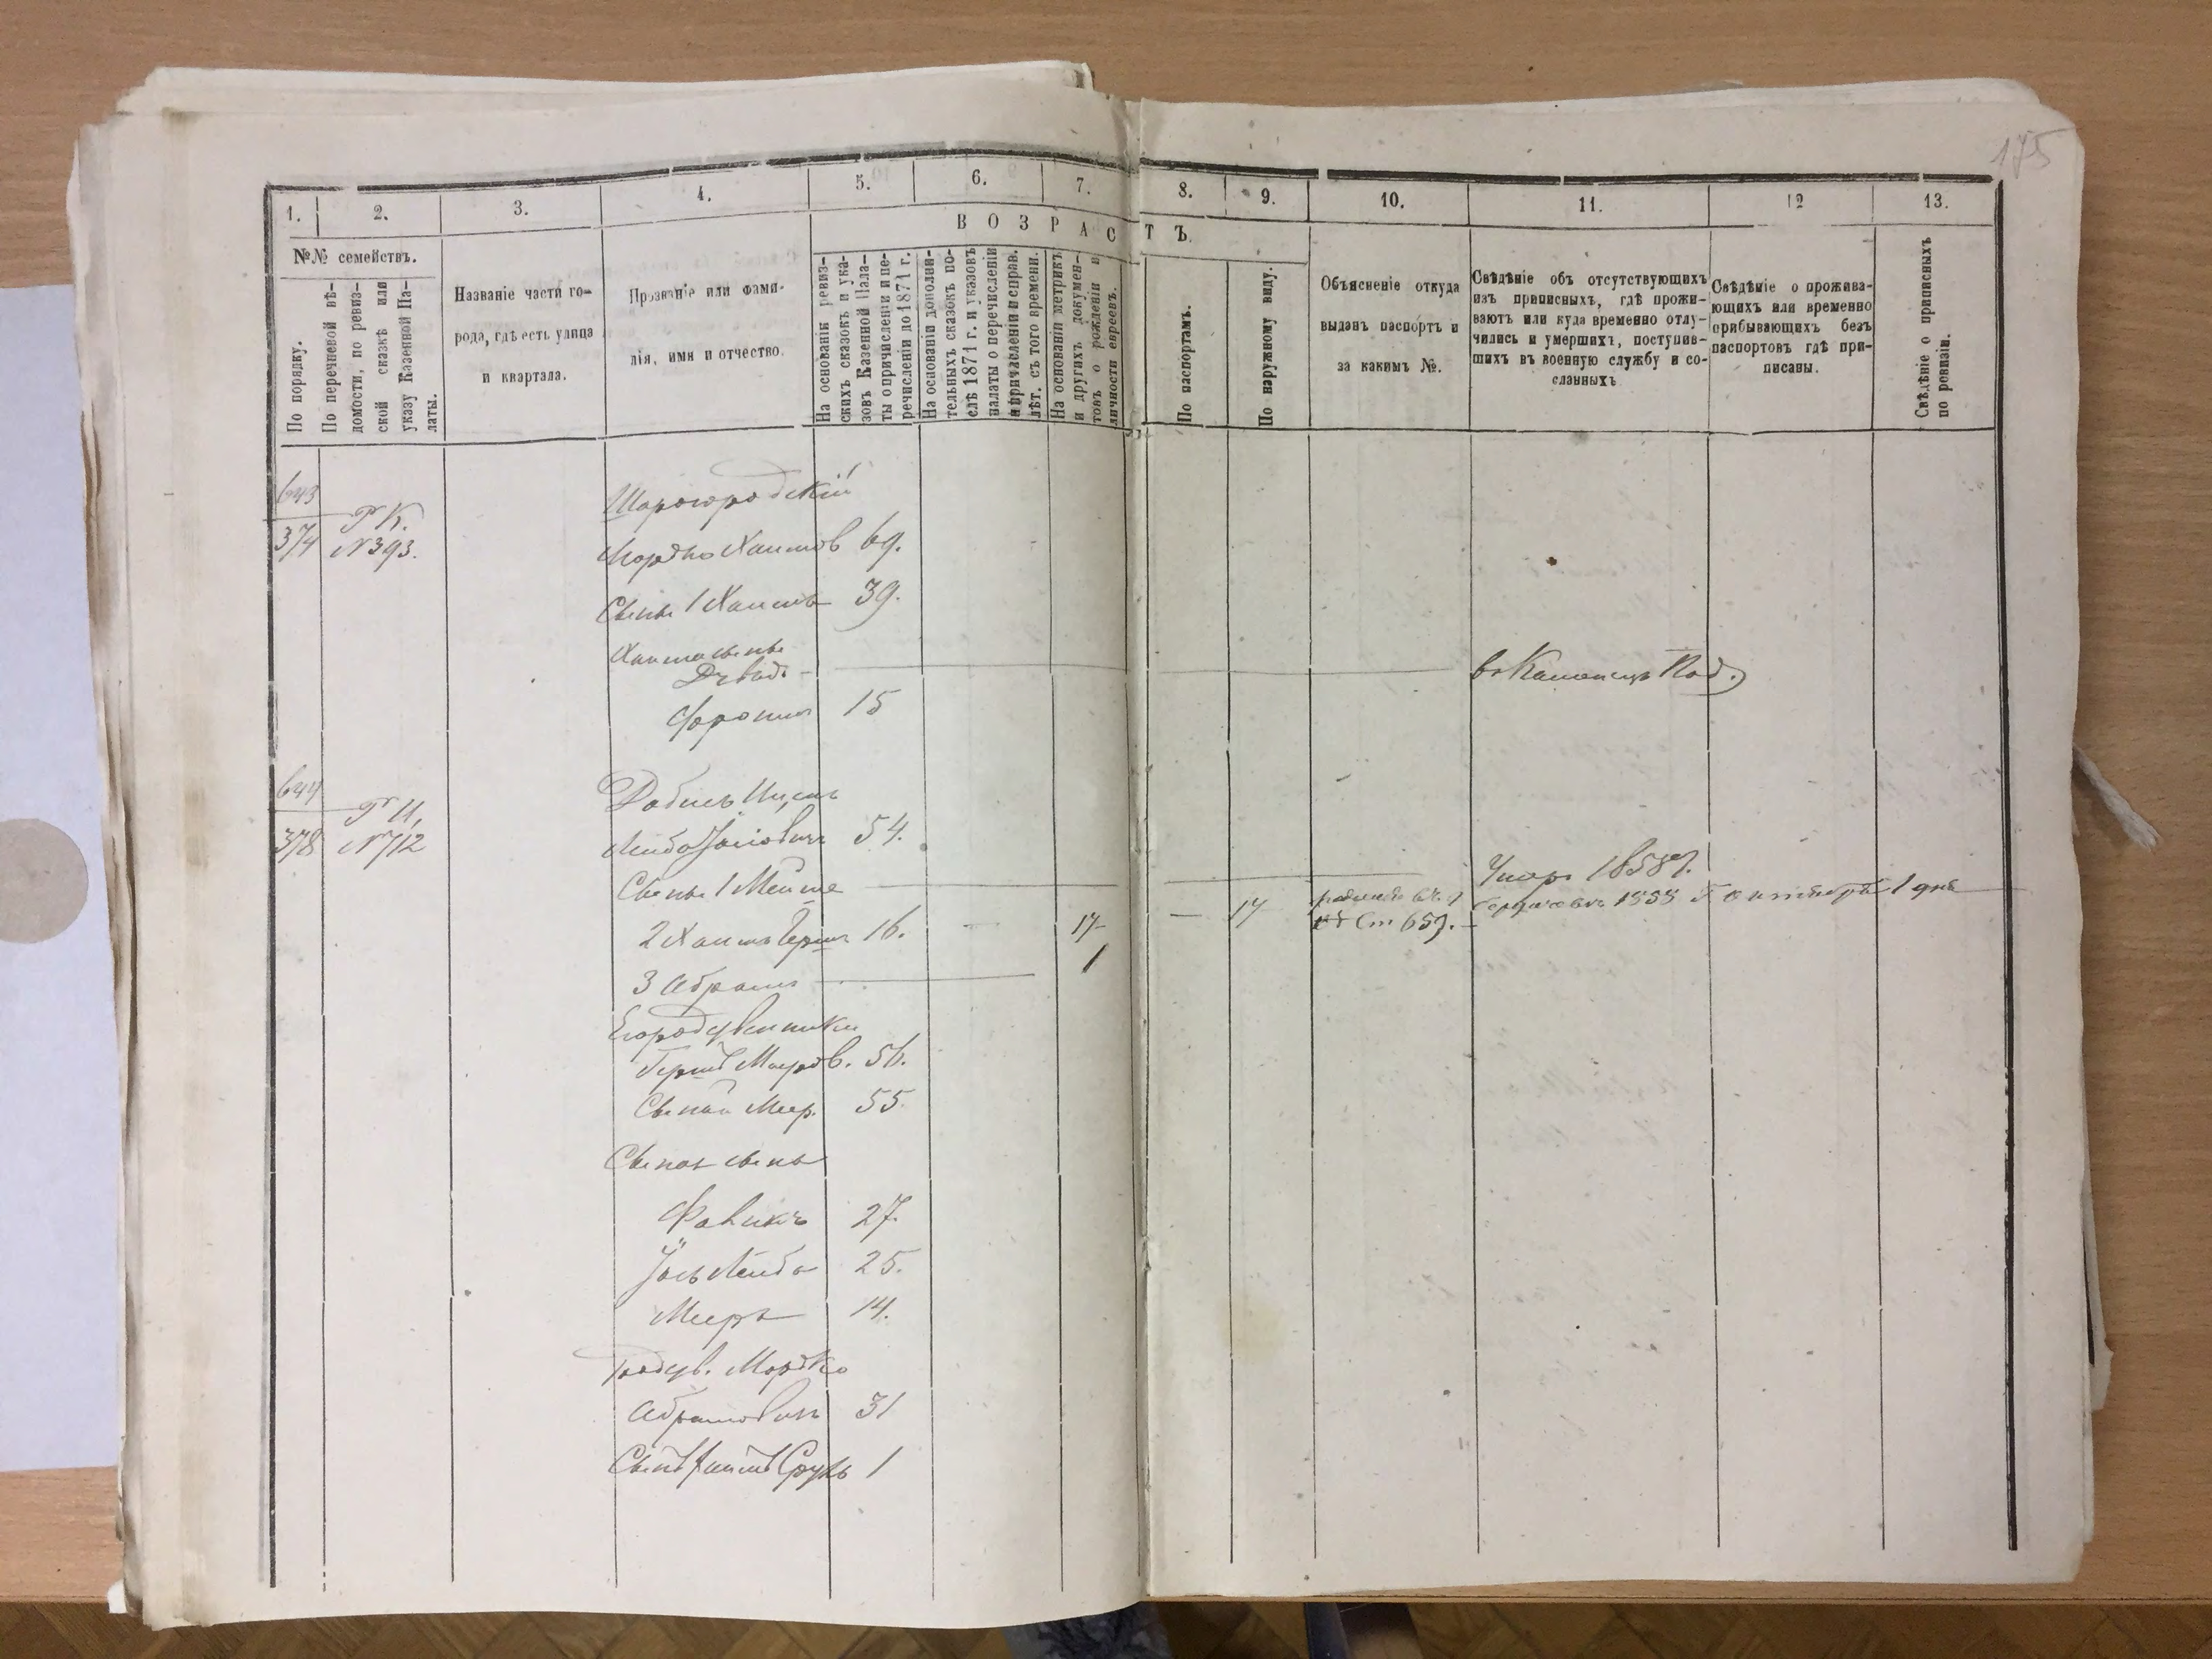 175
1.
2.
3.
4.
5.
6.
7.
8.
9.
10.
11.
12
13.
ВОЗРАСТЪ.
№№ семействъ.
По порядку.
По перечневой вѣ-
домости, по ревиз-
ской сказкѣ или
указу Казенной Па-
латы.
Названіе части го-
рода, гдѣ есть улица
и квартала.
Прозваніе или фами-
лія, имя и отчество.
На основаніи ревиз-
скихъ сказокъ и ука-
зовъ Казенной Пала-
ты о причисленіи и пе-
речисленіи до 1871 г.
На основаніи дополни-
тельныхъ сказокъ по-
слѣ 1871 г. и указовъ
палаты о перечисленіи
и причисленіи и справ.
лѣт. съ того времени.
На основаніи метрикъ
и другихъ докумен-
товъ о рожденіи и
личности евреевъ.
По паспортамъ.
По наружному виду.
Объясненіе откуда
выданъ паспортъ и
за какимъ №.
Свѣдѣніе объ отсутствующихъ
изъ приписныхъ, гдѣ прожи-
ваютъ или куда временно отлу-
чились и умершихъ, поступив-
шихъ въ военную службу и со-
сланныхъ
Свѣдѣніе о прожива-
ющихъ или временно
прибывающихъ безъ
паспортовъ гдѣ при-
писаны.
Свѣдѣніе о приписныхъ
по ревизіи.
643
374
Р К.
№393.
Шарогродскій
Мордко Хаимов 69.
Сынъ 1 Хаимъ 39.
Хаима сынъ
Давидъ —
в Каменцѣ Под.
Фроимъ 15
644
378
№712
Лейба Іосіовичъ 54.
Сынъ 1 Мейше —
Умеръ 1858 г.
2 Хаимъ Гершъ 16. — 17 — 17
Ст 657. —
1 дня
3 Абрамъ — 1
Его родственники
Гершъ Мееров. 56.
Сынъ Меер. 55
Сына сынъ
Фавикъ 27.
Іось Лейба 25.
Мееръ 14.
Родств. Мордко
Абрамовичъ 31
Сынъ Хаимъ Сруль 1